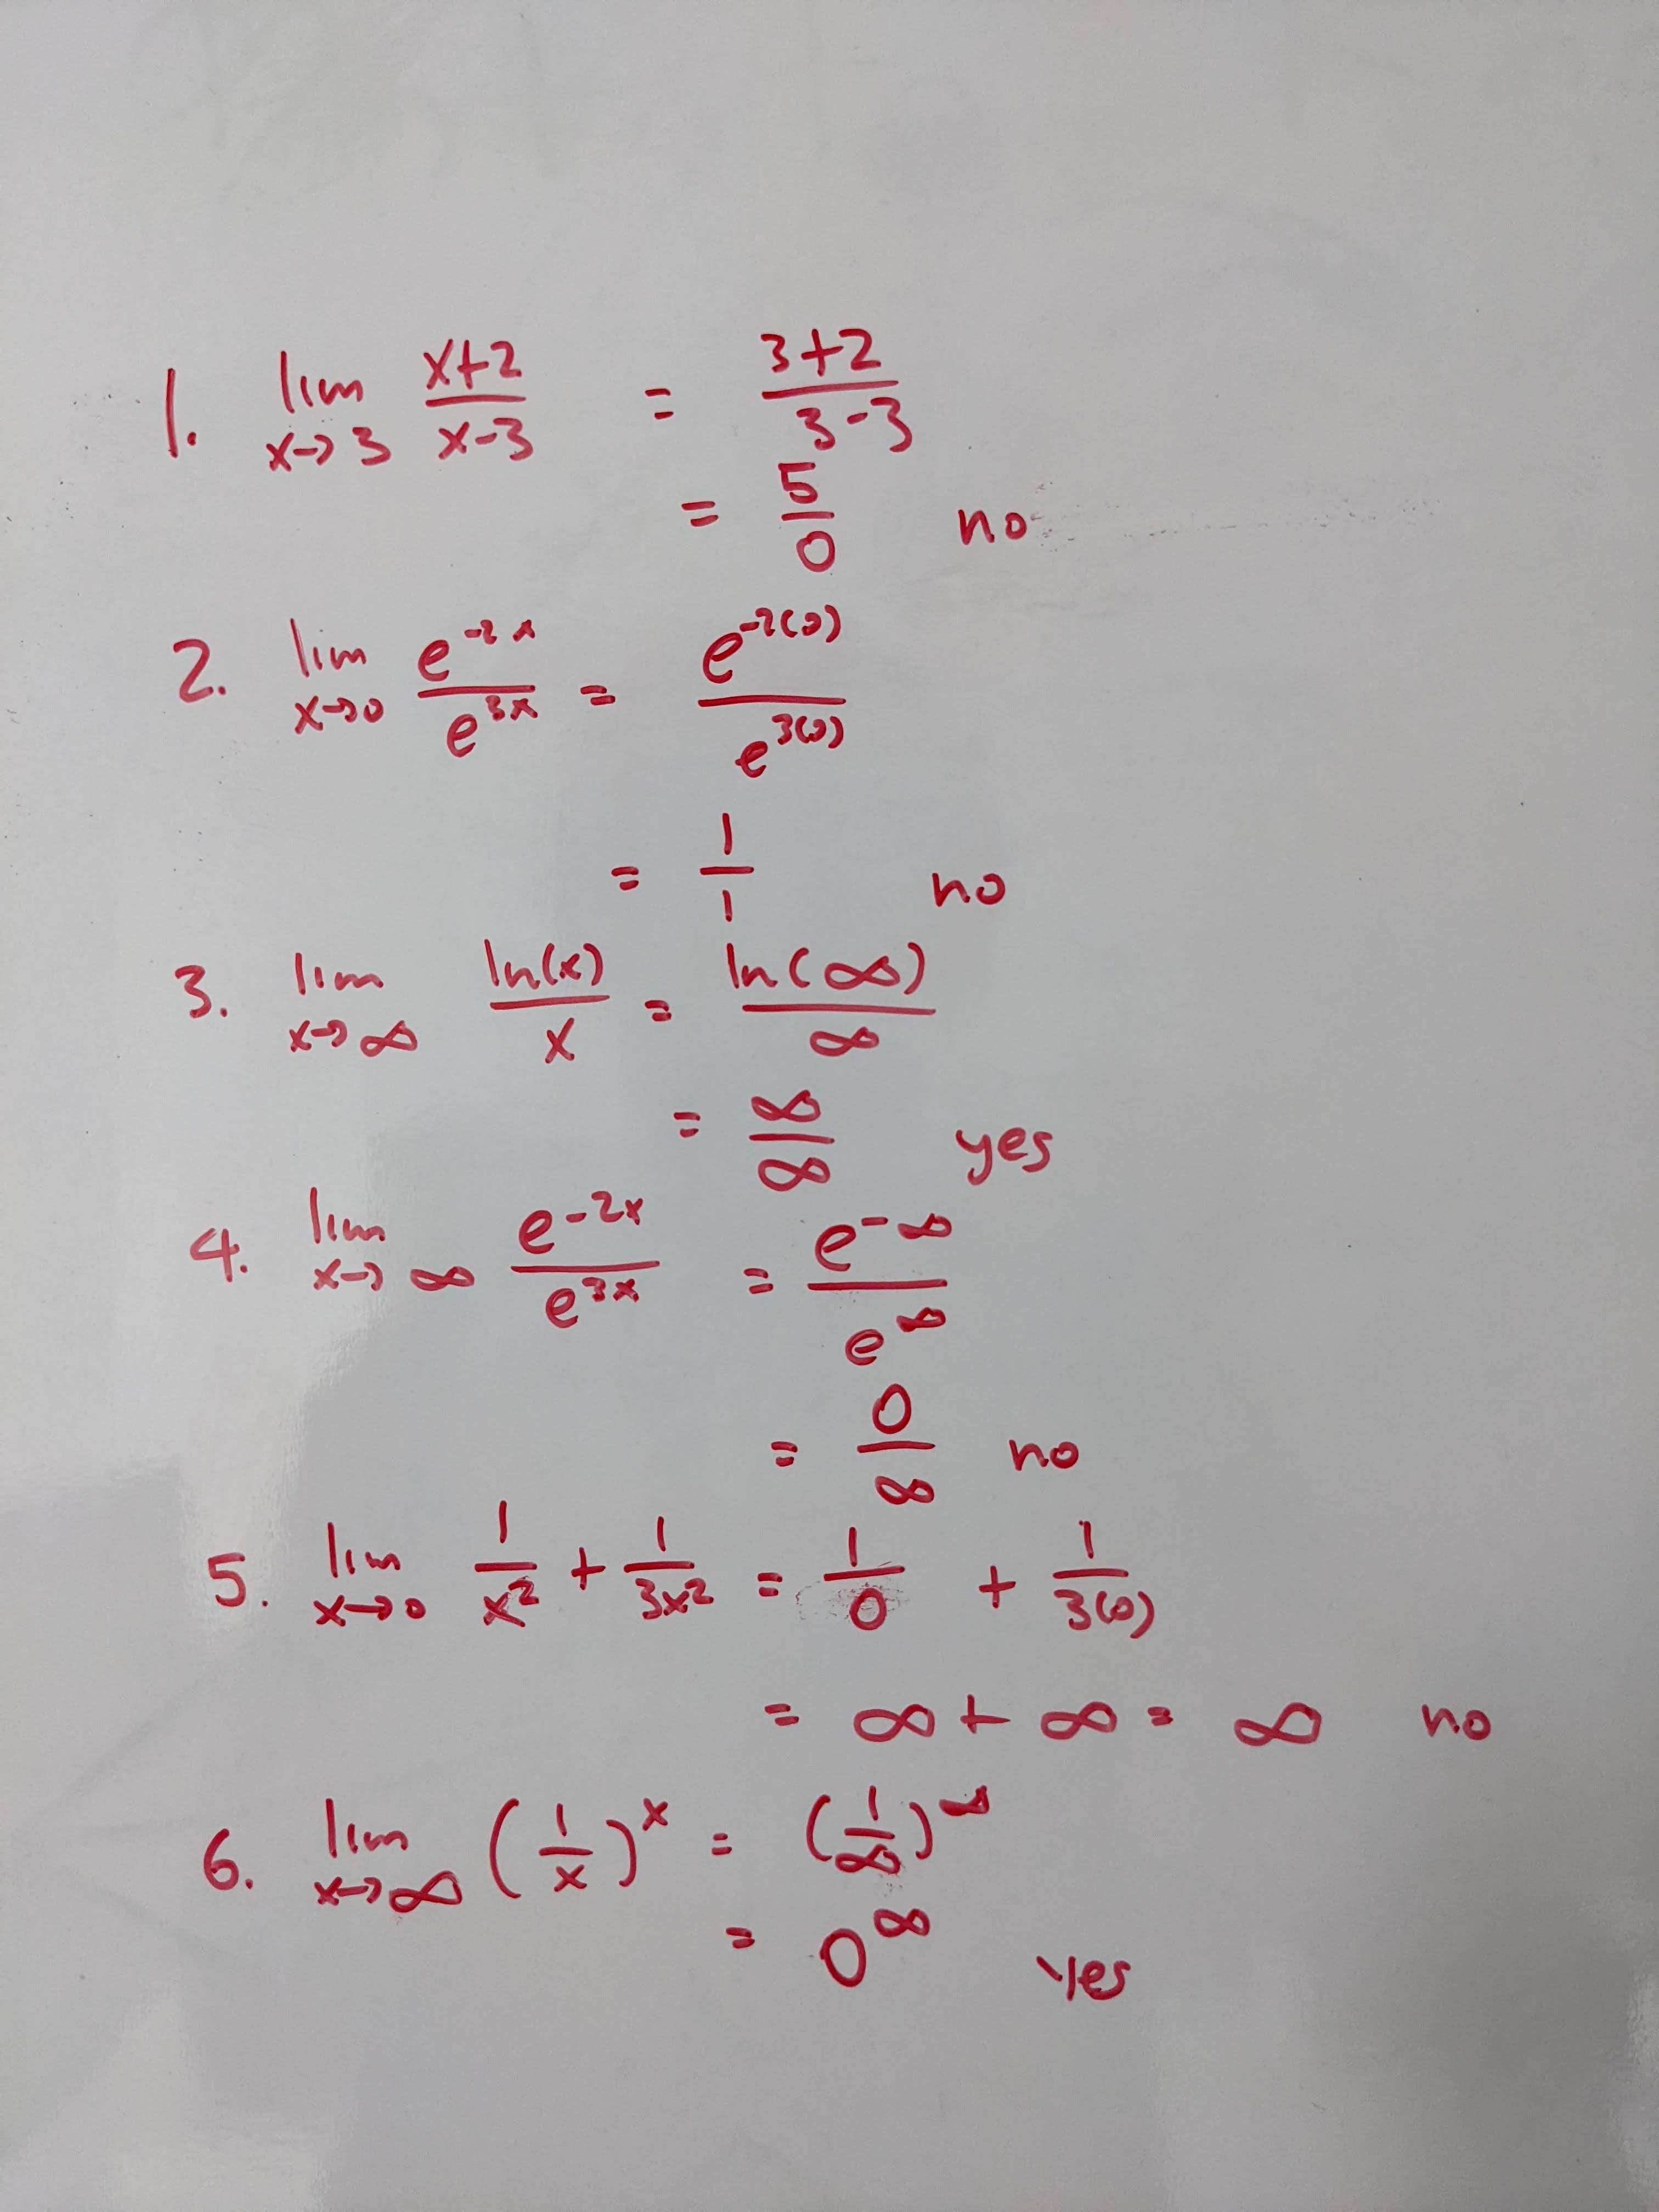 1. lim x→3 (x+2)/(x-3) = (3+2)/(3-3)
= 5/0 no
2. lim x→0 e^(-2x)/e^(3x) = e^(-2(0))/e^(3(0))
= 1/1 no
3. lim x→∞ ln(x)/x = ln(∞)/∞
= ∞/∞ yes
4. lim x→∞ e^(-2x)/e^(3x) = e^(-∞)/e^∞
= 0/∞ no
5. lim x→0 1/x² + 1/3x² = 1/0 + 1/3(0)
= ∞ + ∞ = ∞ no
6. lim x→∞ (1/x)^x = (1/∞)^∞
= 0^∞ yes